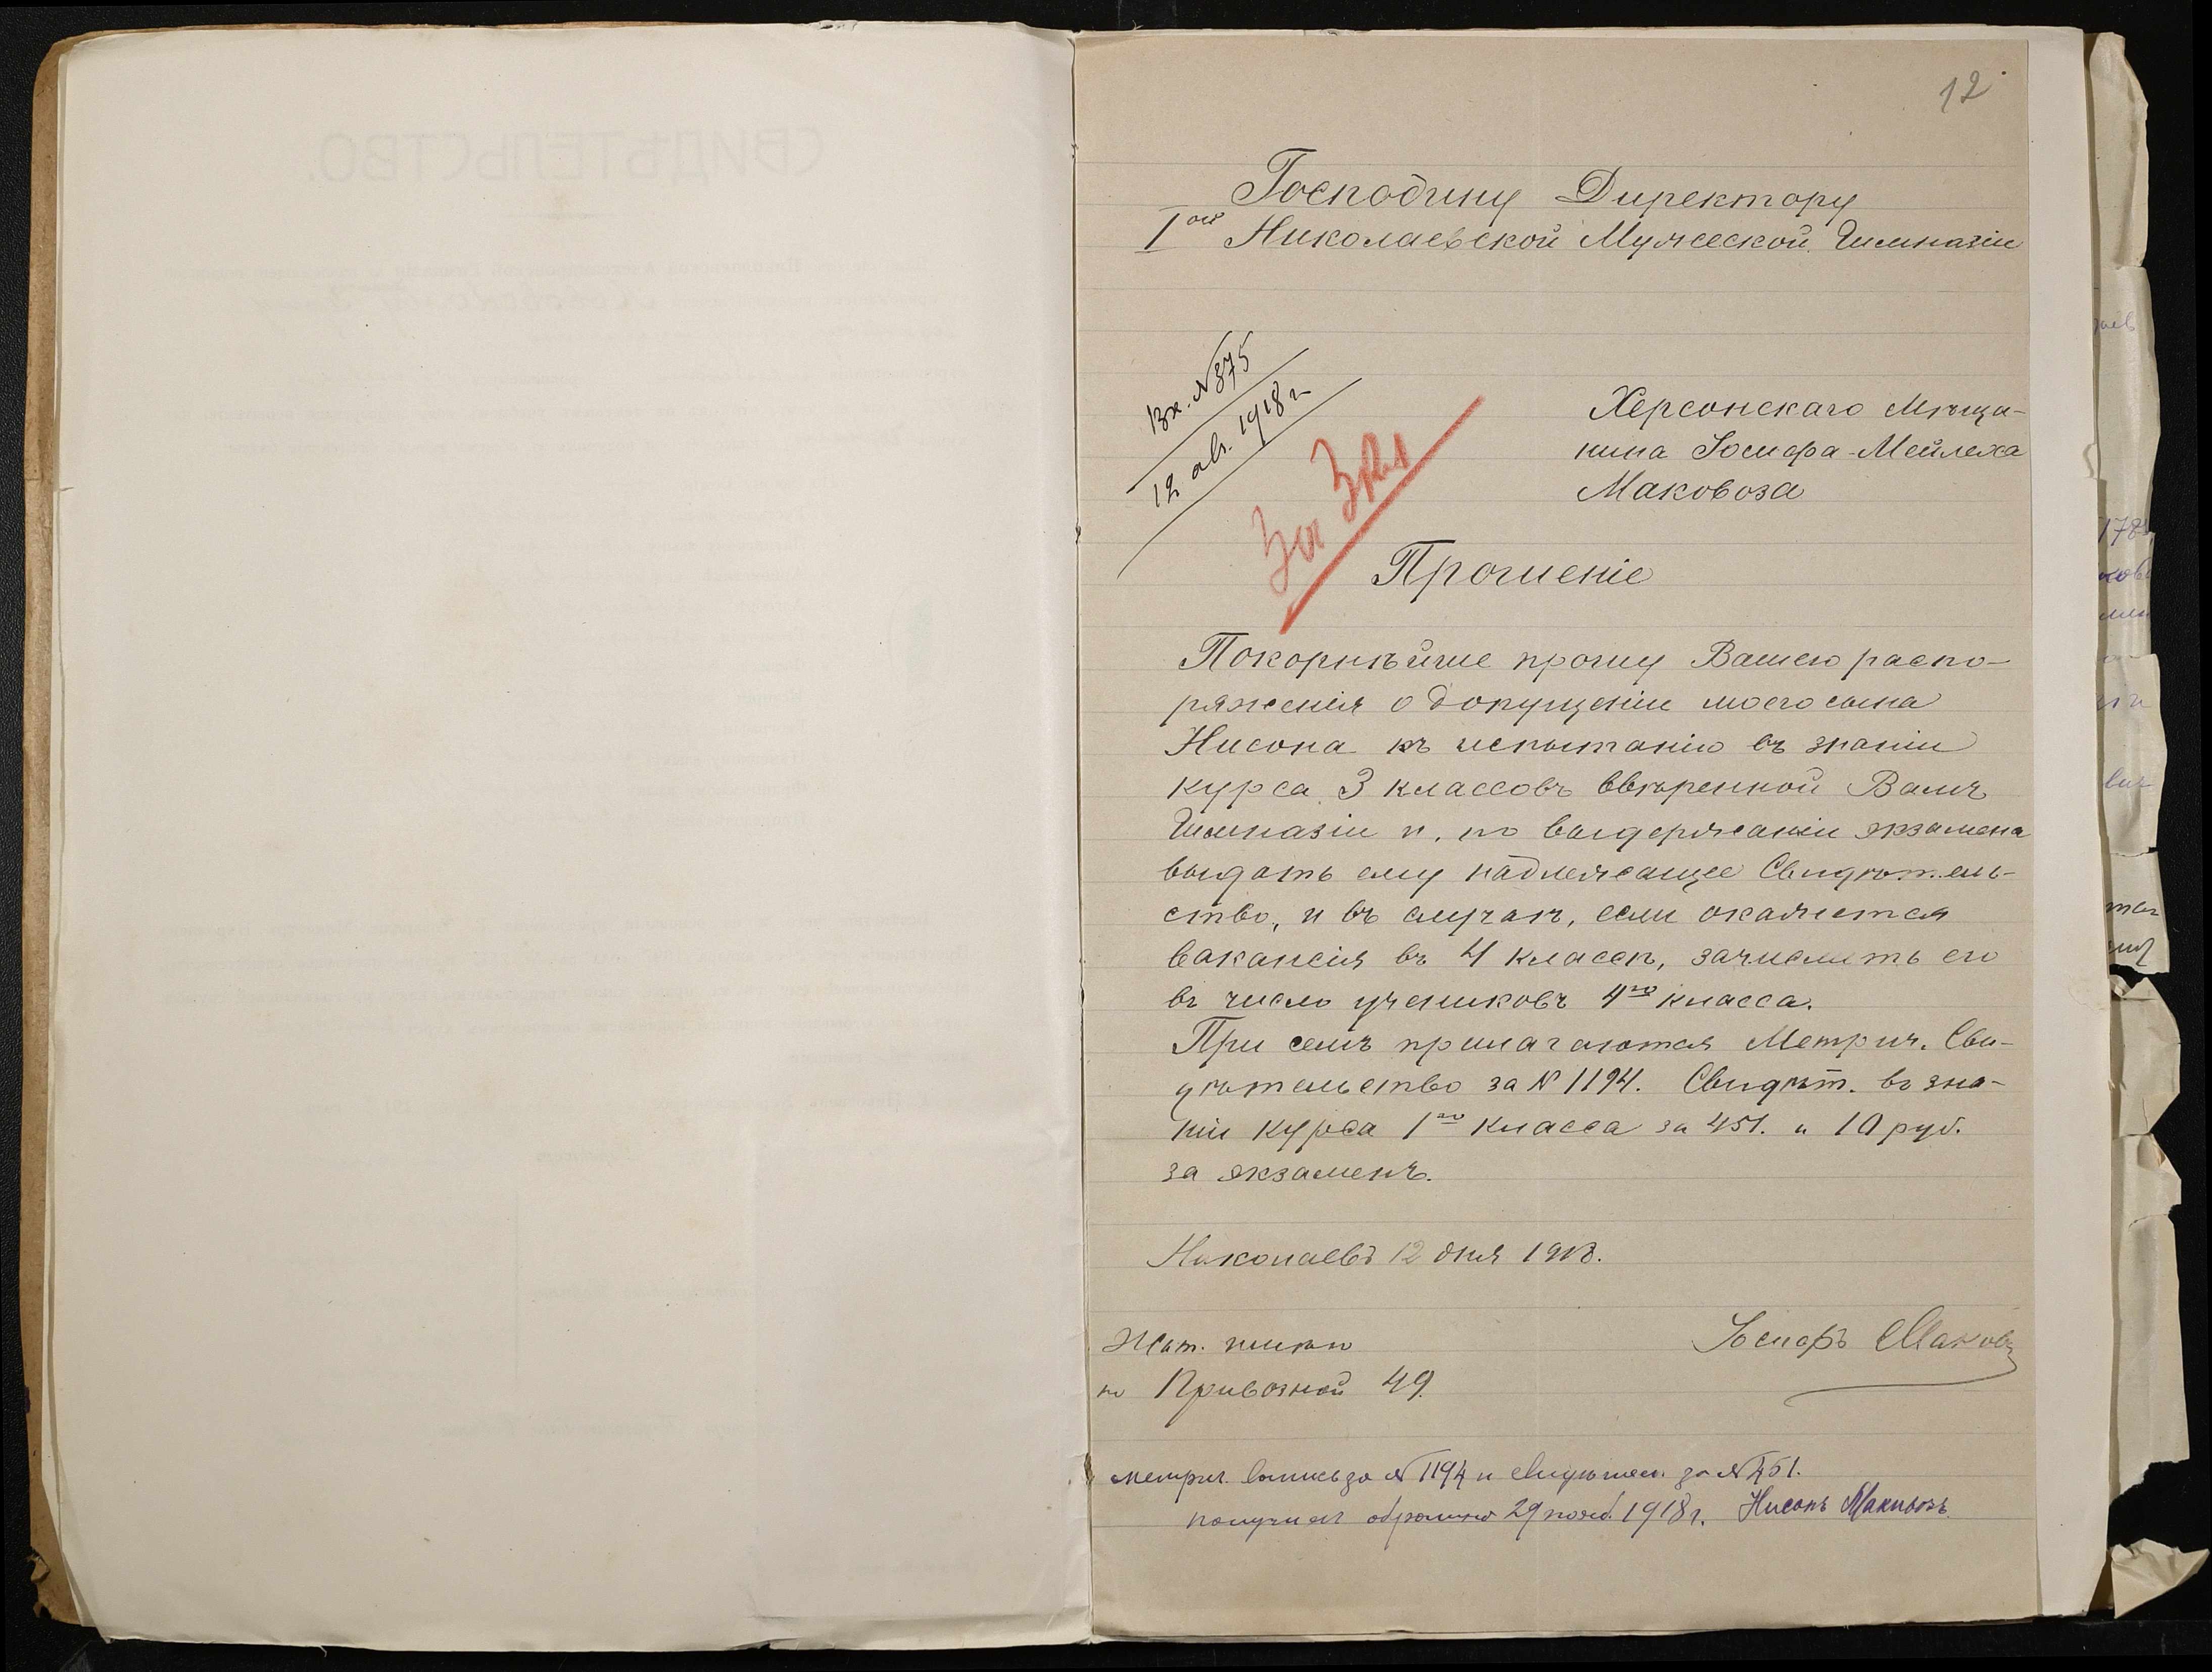 12
Господину Директору
I ой Николаевской Мужеской Гимназіи
Вх. № 875
12 авг. 1918 г.
За 3 кл
Херсонскаго Мѣща-
нина Іосифа-Мейлеха
Маковоза
Прошеніе
Покорнѣйше прошу Вашего распо-
ряженія о допущеніи моего сына
Нисона къ испытанію въ знаніи
курса 3 классовъ ввѣренной Вамъ
Гимназіи и, по выдержаніи экзамена
выдать ему надлежащее Свидѣтель-
ство, и въ случаѣ, если окажется
вакансія въ 4 классѣ, зачислить его
въ число учениковъ 4го класса.
При семъ прилагаются Метрич. Сви-
дѣтельство за № 1194. Свидѣт. въ зна-
ніи курса 1го класса за 451. и 10 руб.
за экзаменъ.
Николаевъ 12 дня 1918.
Іосифъ Маковоз
Жит.
по Привозной 49.
метрич. выпись за № 1194 и свидѣтел. за № 451.
получил обратно 29 нояб. 1918 г. Нисонъ Маковозъ
СВИДѢТЕЛЬСТВО.